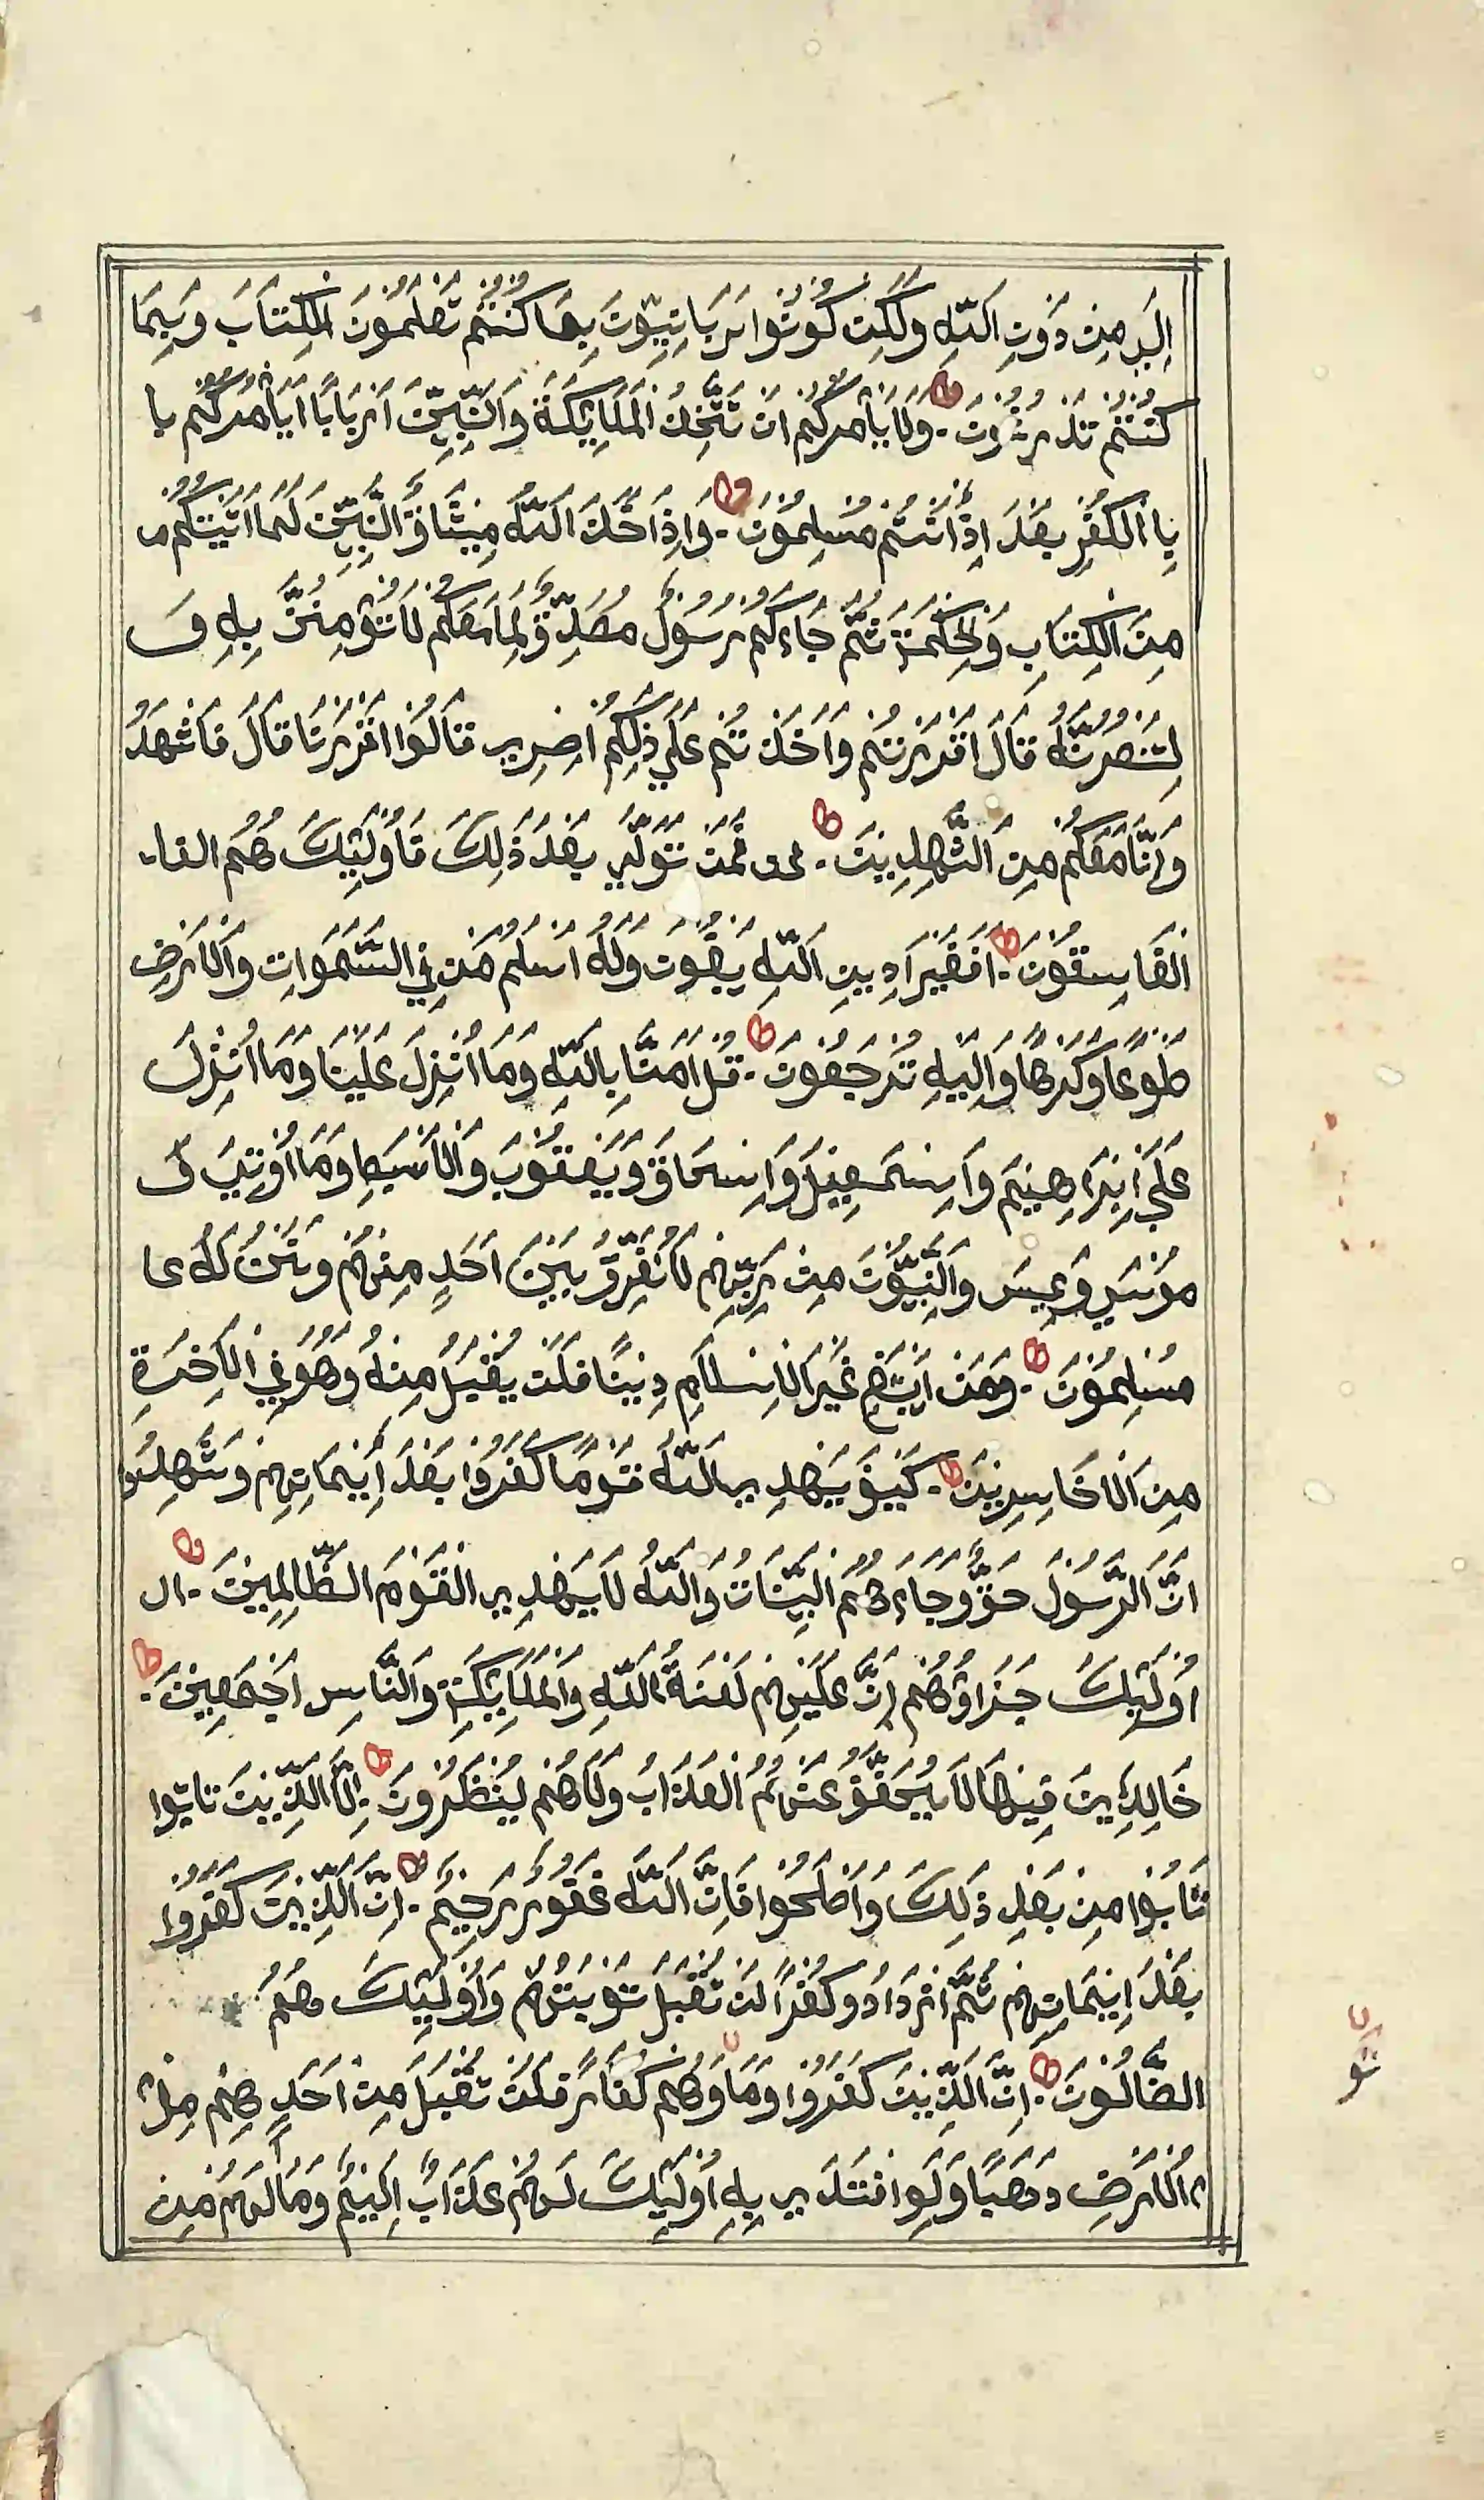 اِلَي مِن دُوْنِ اَللّهِ وَلَكِن كُوْنُوْا رَبَّانِيِّوْنَ بِمَا كُنْتُمْ تَعْلَمُوْنَ لْكِتَابَ وَبِمَا
كُنْتُمْ تَدْرُسُوْنَ - وَلَا يَأْمُرَكُمْ اَنْ تَتَّخِذُ اَلْمَلَايِٕكَةَ وَالنَّبِيِّنَ اَرْبَابًا اَيَأْمُرُكُمْ با
بِا اَلْكُفْرِ بَعْدَ اِذْ اَنْتُمْ مُسْلِمُوْنَ - وَاِذَاخَذَ اَللّهُ مِيْثَاقَ النَّبِيِّنَ لَمَا اَتَيْتُكُمْ م
مِنَ الْكِتَابِ وَلْحِكْمَةٍ ثُمَّ جَاءَكُمْ رَسُوْلٌ مُصَدِّقٌ لِمَا مَعَكُمْ لَاتُؤْمِنُنَّ بِهِ وَ
لِتَنْصُرُنَّهُ قَالَ اَقْرَرْتُمْ وَاَخَذْتُمْ عَلَي ذَلِكُمْ اِصْرِي قَالُوْا اَقْرَرْنَا قَالَ فَاشْهَدُ
وَاَنَا مَعَكُمْ مِنَ الشَّهِدِيْنَ - فمن فَمَنْ تَوَلَّي بَعْدَ ذَلِكَ فَاُوْلَيِٕكَ هُمُ الفا -
اَلْفَاسِقُوْنَ - اَفَغَيْرَ دِيْنِ اَللّهِ يَبْغُوْنَ وَلَهُ اَسْلَمَ مَنْ فِي السَّمَوَاتِ وَاْلَارْضِ
طَوْعًا وَكَرْهًا وَاِلَيْهِ تُرْجَعُوْنَ - قُلْ اَمَنَّا بِاللّهِ وَمَا اُنْزِلَ عَلَيْنَا وَمَا اُنْزِلَ
عَلَي اِبْرَاهِيْمَ وَاِسْمَعِيْلَ وَاِسْحَاقَ وَيَعْقُوْبَ وَاْلَاسْبَطِ وَمَا اُوْتِيَ مُ
مُوْسَي وَعِيسَ وَالنَّبِيُّوْنَ مِنْ رَبِّهِمْ لَانُفَرِّقُ بَيْنَ اَحَدٍ مِنْهُمْ وَنَحْنُ لَهُ
مُسْلِمُوْنَ - وَمَنْ اَيَبْتَغِ غَيْرَ اْلَاِسْلَامِ دِيْنًا فَلَنْ يُقْبَلَ مِنْهُ وَهُوَ فِي اْلَاخِرَةِ
مِنَ اْلَاخَاسِرِيْنَ - كَيْفَ يَهْدِي اَللّهُ قَوْمًا كَفَرُوْا بَعْدَ اِيْمَانِهِمْ وَشَهِدُو
اَنَّ الرَّسُوْلَ حَقٌّ وَجَاءَهُمُ الْبَيِّنَاتُ وَاللّهُ لَايَهْدِي الْقَوْمَ الظَّالِمِيْنَ - ال
اُوْلَيِٕكَ جَزَاؤُهُمْ اَنَّ عَلَيْهِمْ لَعْنَةُ اللّهِ وَاْلمَلَايِٕكَةِ وَالنَّاسِ اَجْمَعِيْنَ -
خَالِدِيْنَ فِيْهَا لَا يُخَفَّفُ عَنْهُمُ الْعَذَابُ وَلَاهُمْ يُنْظَرُوْنَ - اِلَّا الَّذِيْنَ تابوا
تَابُوْا مِنْ بَعْدِ ذَلِكَ وَاَصْلَحُوْا فَاِنَّ اللّهَ غَفُوْرٌ رَحِيْمٌ - اِنَّ اَلَّذِيْنَ كَفَرُوْا
بَعْدَ اِيْمَانِهِمْ ثُمَّ ازْدَادُو كُفْرًا لَنْ تُقْبَلَ تَوْبَتُهُمْ وَاُوْلَيِٕكَ هُمُ
الضَّالُّوْنَ - اِنَّ اَلَّذِيْنَ كَفَرُوْا وَمَا وَهُمْ كُفَّارٌ فَلَنْ تُقْبَلَ مِنْ اَحَدِ هِمْ مِلْءُ
اْلَارْضِ ذهَبًا وَلَوِا فْتَدَي بِهِ اُوْلَيِٕكَ لَهُمْ عَذَابٌ اَلِيْمٌ وَمَالَهُمْ مِن